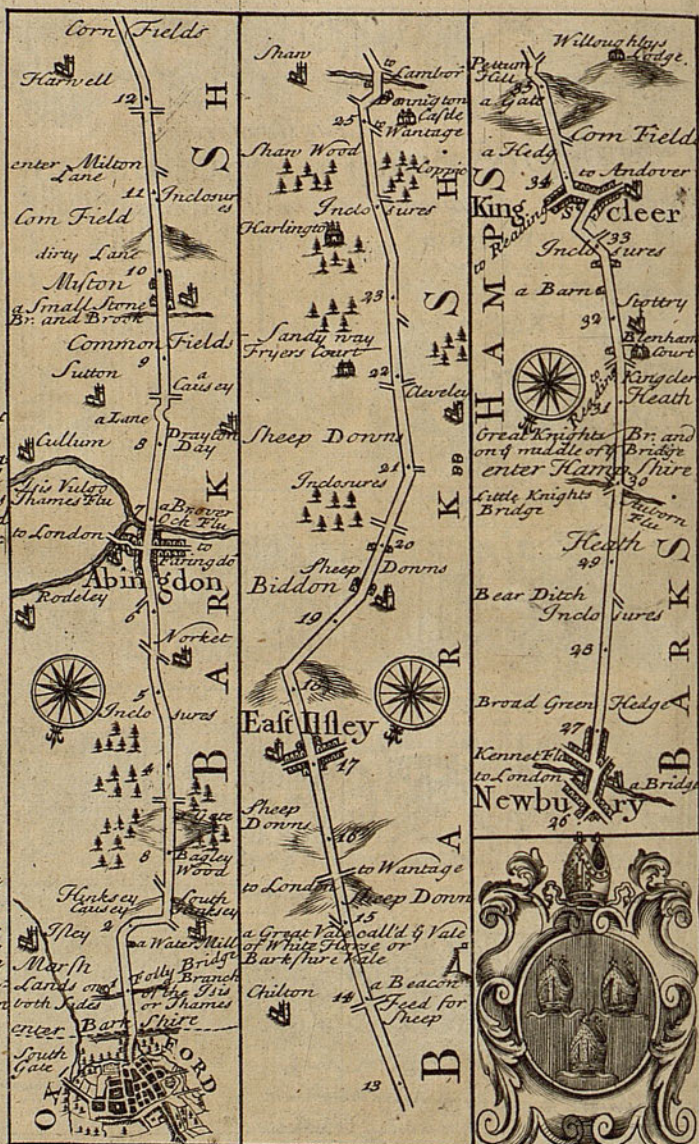 Corn Fields
Harwell
12
enter Milton
Lane
11
Inclosur
es
Corn Field
dirty Lane
10
Milton
a Small Stone
Br. and Brook
Common Fields
9
Sutton
a
Causey
a Lane
Cullum
8
Drayton
Day
Isis Vulgo
Thames Flu
7
a Br over
Ock Flu
to London
to
Faringdo
Abingdon
Rodeley
6
Norket
5
Inclosures
4
a Gate
3
Bagley
Wood
Hinksey
Causey
South
Hinksey
2
Ifley
a Water Mill
Marsh
Lands on
both Sides
1
Folly Bridge
Branch
of the Isis
or Thames
enter Bark Shire
South
Gate
OXFORD
BARKSH
Shaw
to
Lambor
Dennigton
Castle
25
to
Wantage
Shaw Wood
Coppic
Inclosures
Harlington
23
Sandy way
Fryers Court
22
Cleveley
Sheep Downs
21
BB
Inclosures
20
Sheep Downs
Biddon
19
18
East Ilsley
17
Sheep
Downs
16
to Wantage
to London
Sheep Down
15
a Great Vale call'd ye Vale
of White Horse or
Barkshire Vale
Chilton
14
a Beacon
Feed for
Sheep
13
BARKSH.
Willoughbys
Lodge.
Hill
35
a Gate
Corn Field
a Hedg
to Andover
34
Kingscleer
to Reading
33
Inclosures
a Barn
32
Stottry
Elenham
Court
to
Reading
Kingcler
31
Heath
Great Knights Br. and
on ye middle of ye Bridge
enter Hampshire
30
Little Knights
Bridge
Auborn
Flu
Heath
29
Bear Ditch
Inclosures
28
Broad Green Hedge
27
Kennet Flu
to London
a Bridge
Newbury
26
HAMPS
BARKS